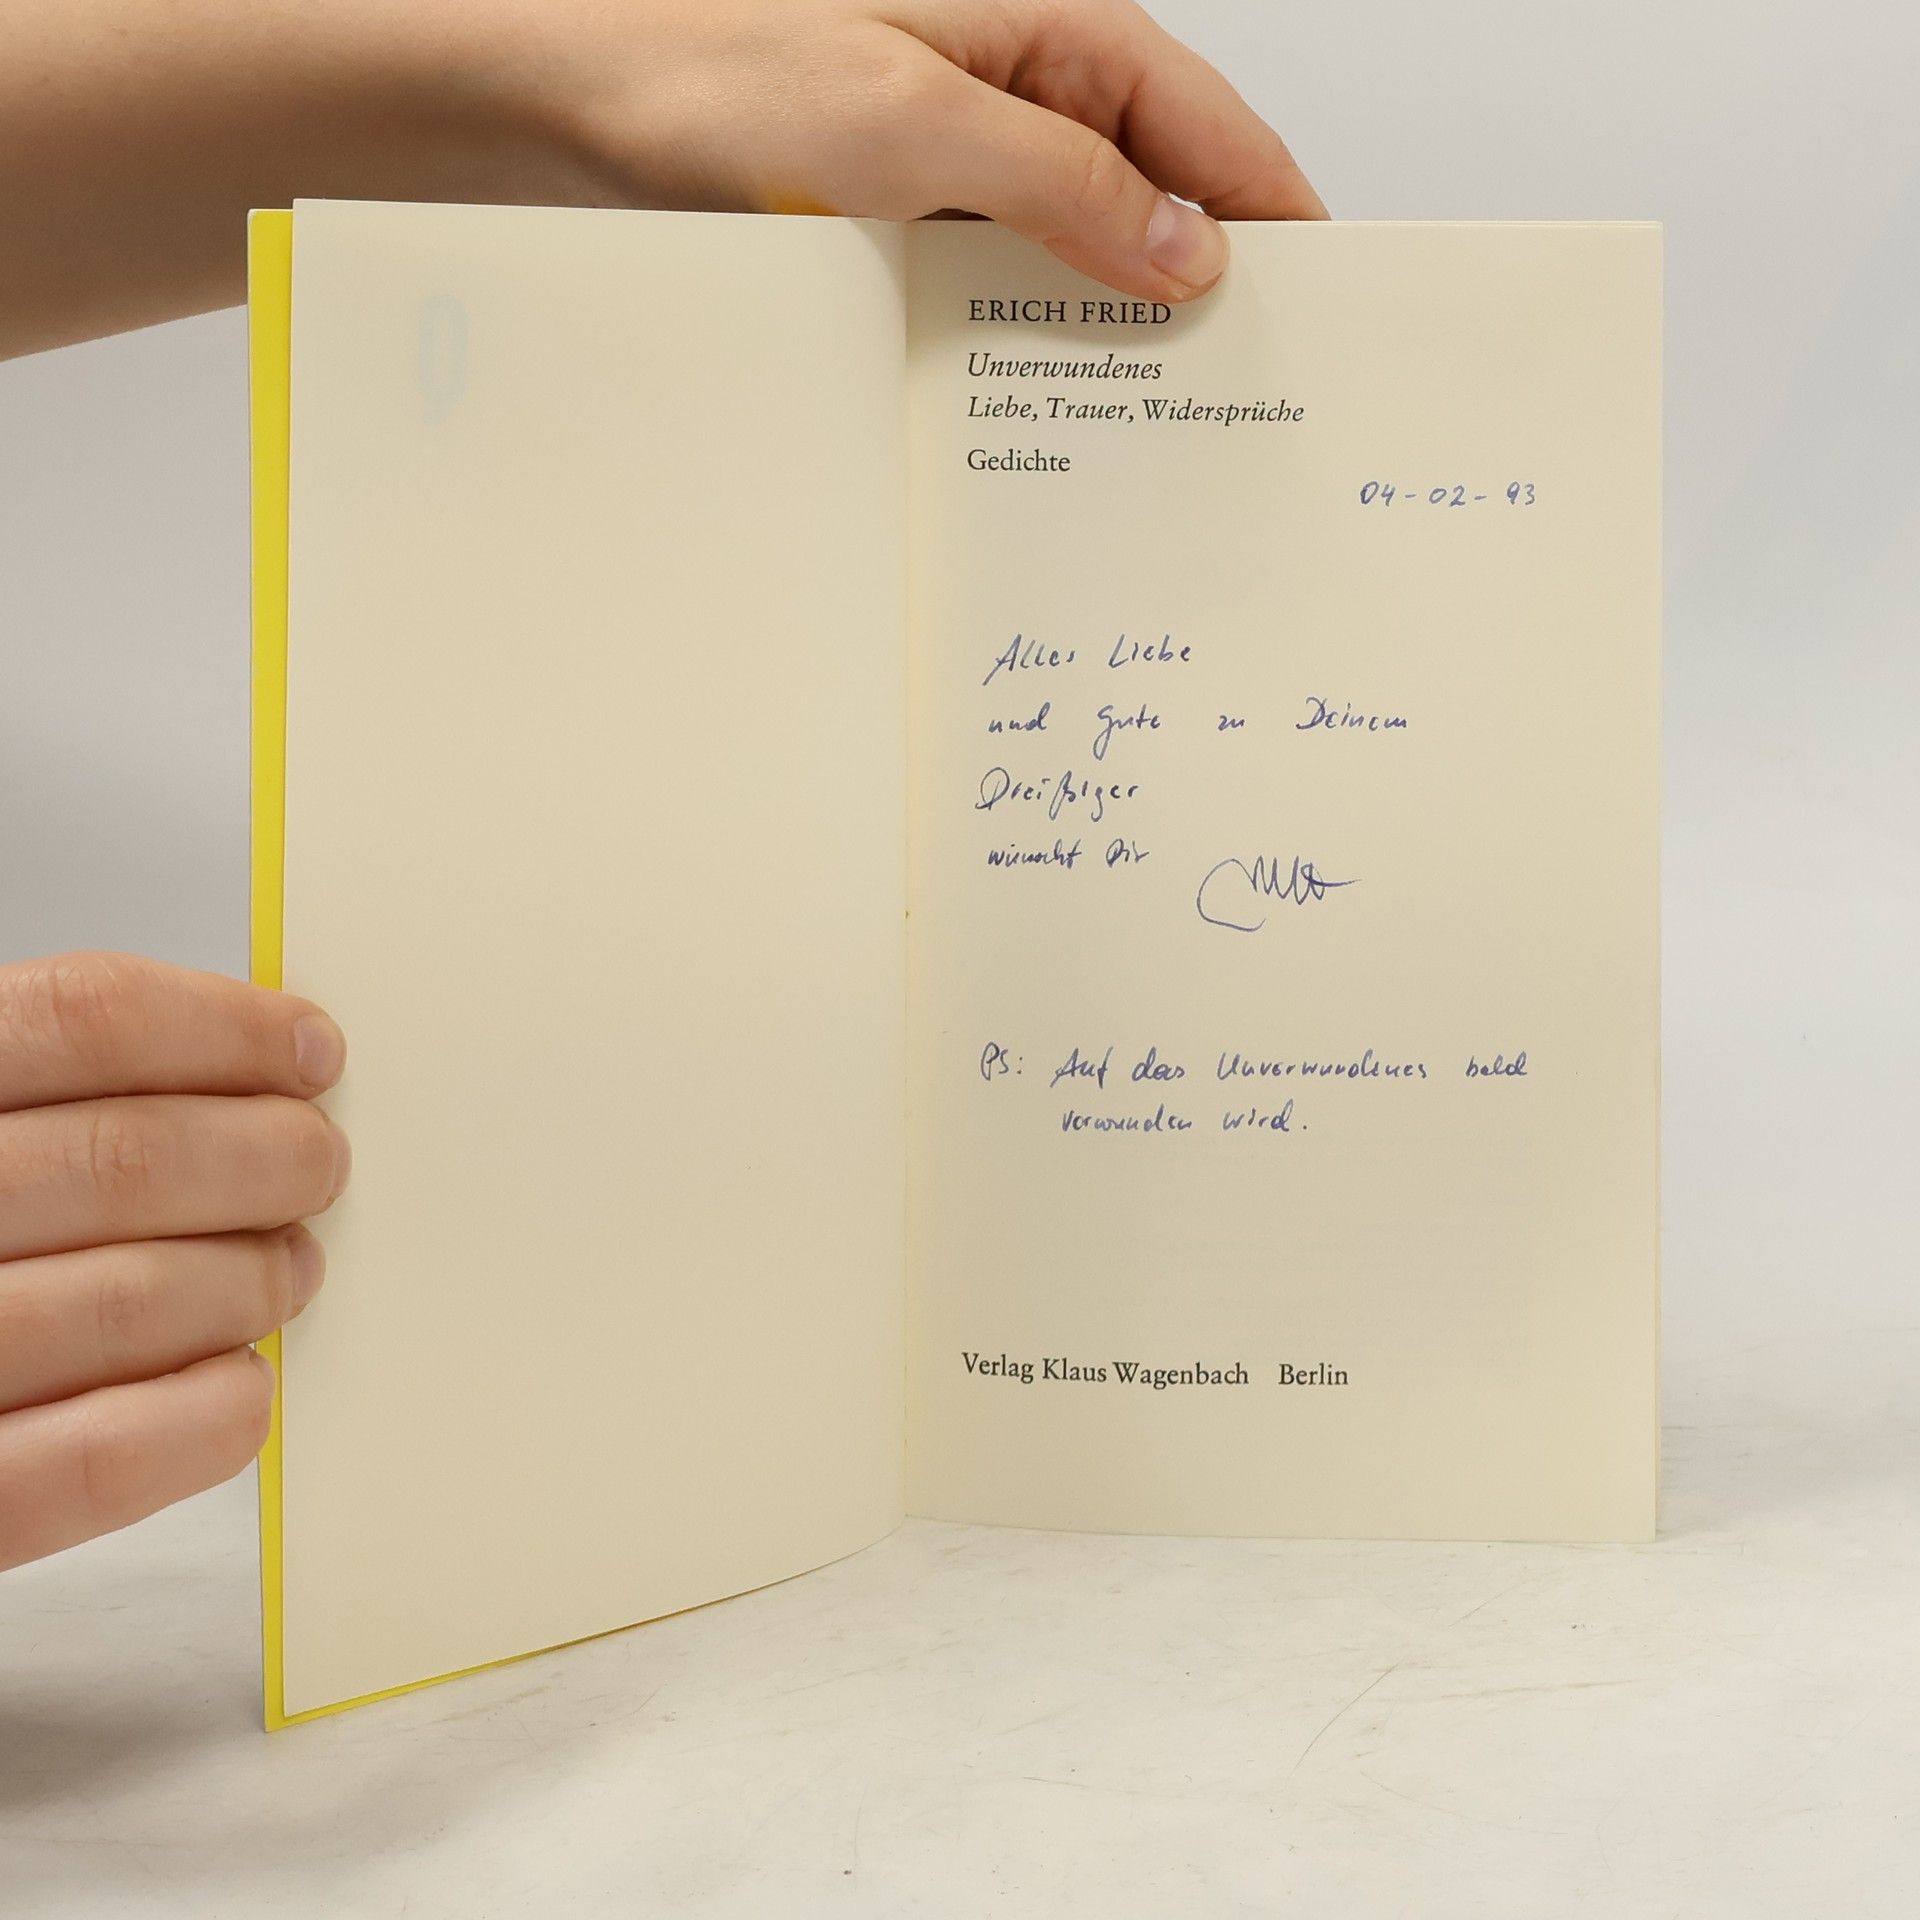 ERICH FRIED
Unverwundenes
Liebe, Trauer, Widersprüche
Gedichte
04-02-93
Alles Liebe
und Gute zu Deinem
Dreißiger
wünscht Dir
PS: Auf das Unverwundenes bald
verwunden wird.
Verlag Klaus Wagenbach Berlin